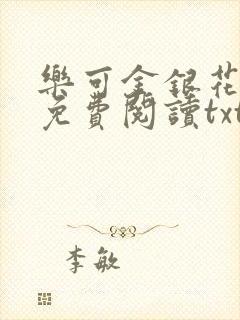 樂可金銀花
免費閱讀txt
李敏